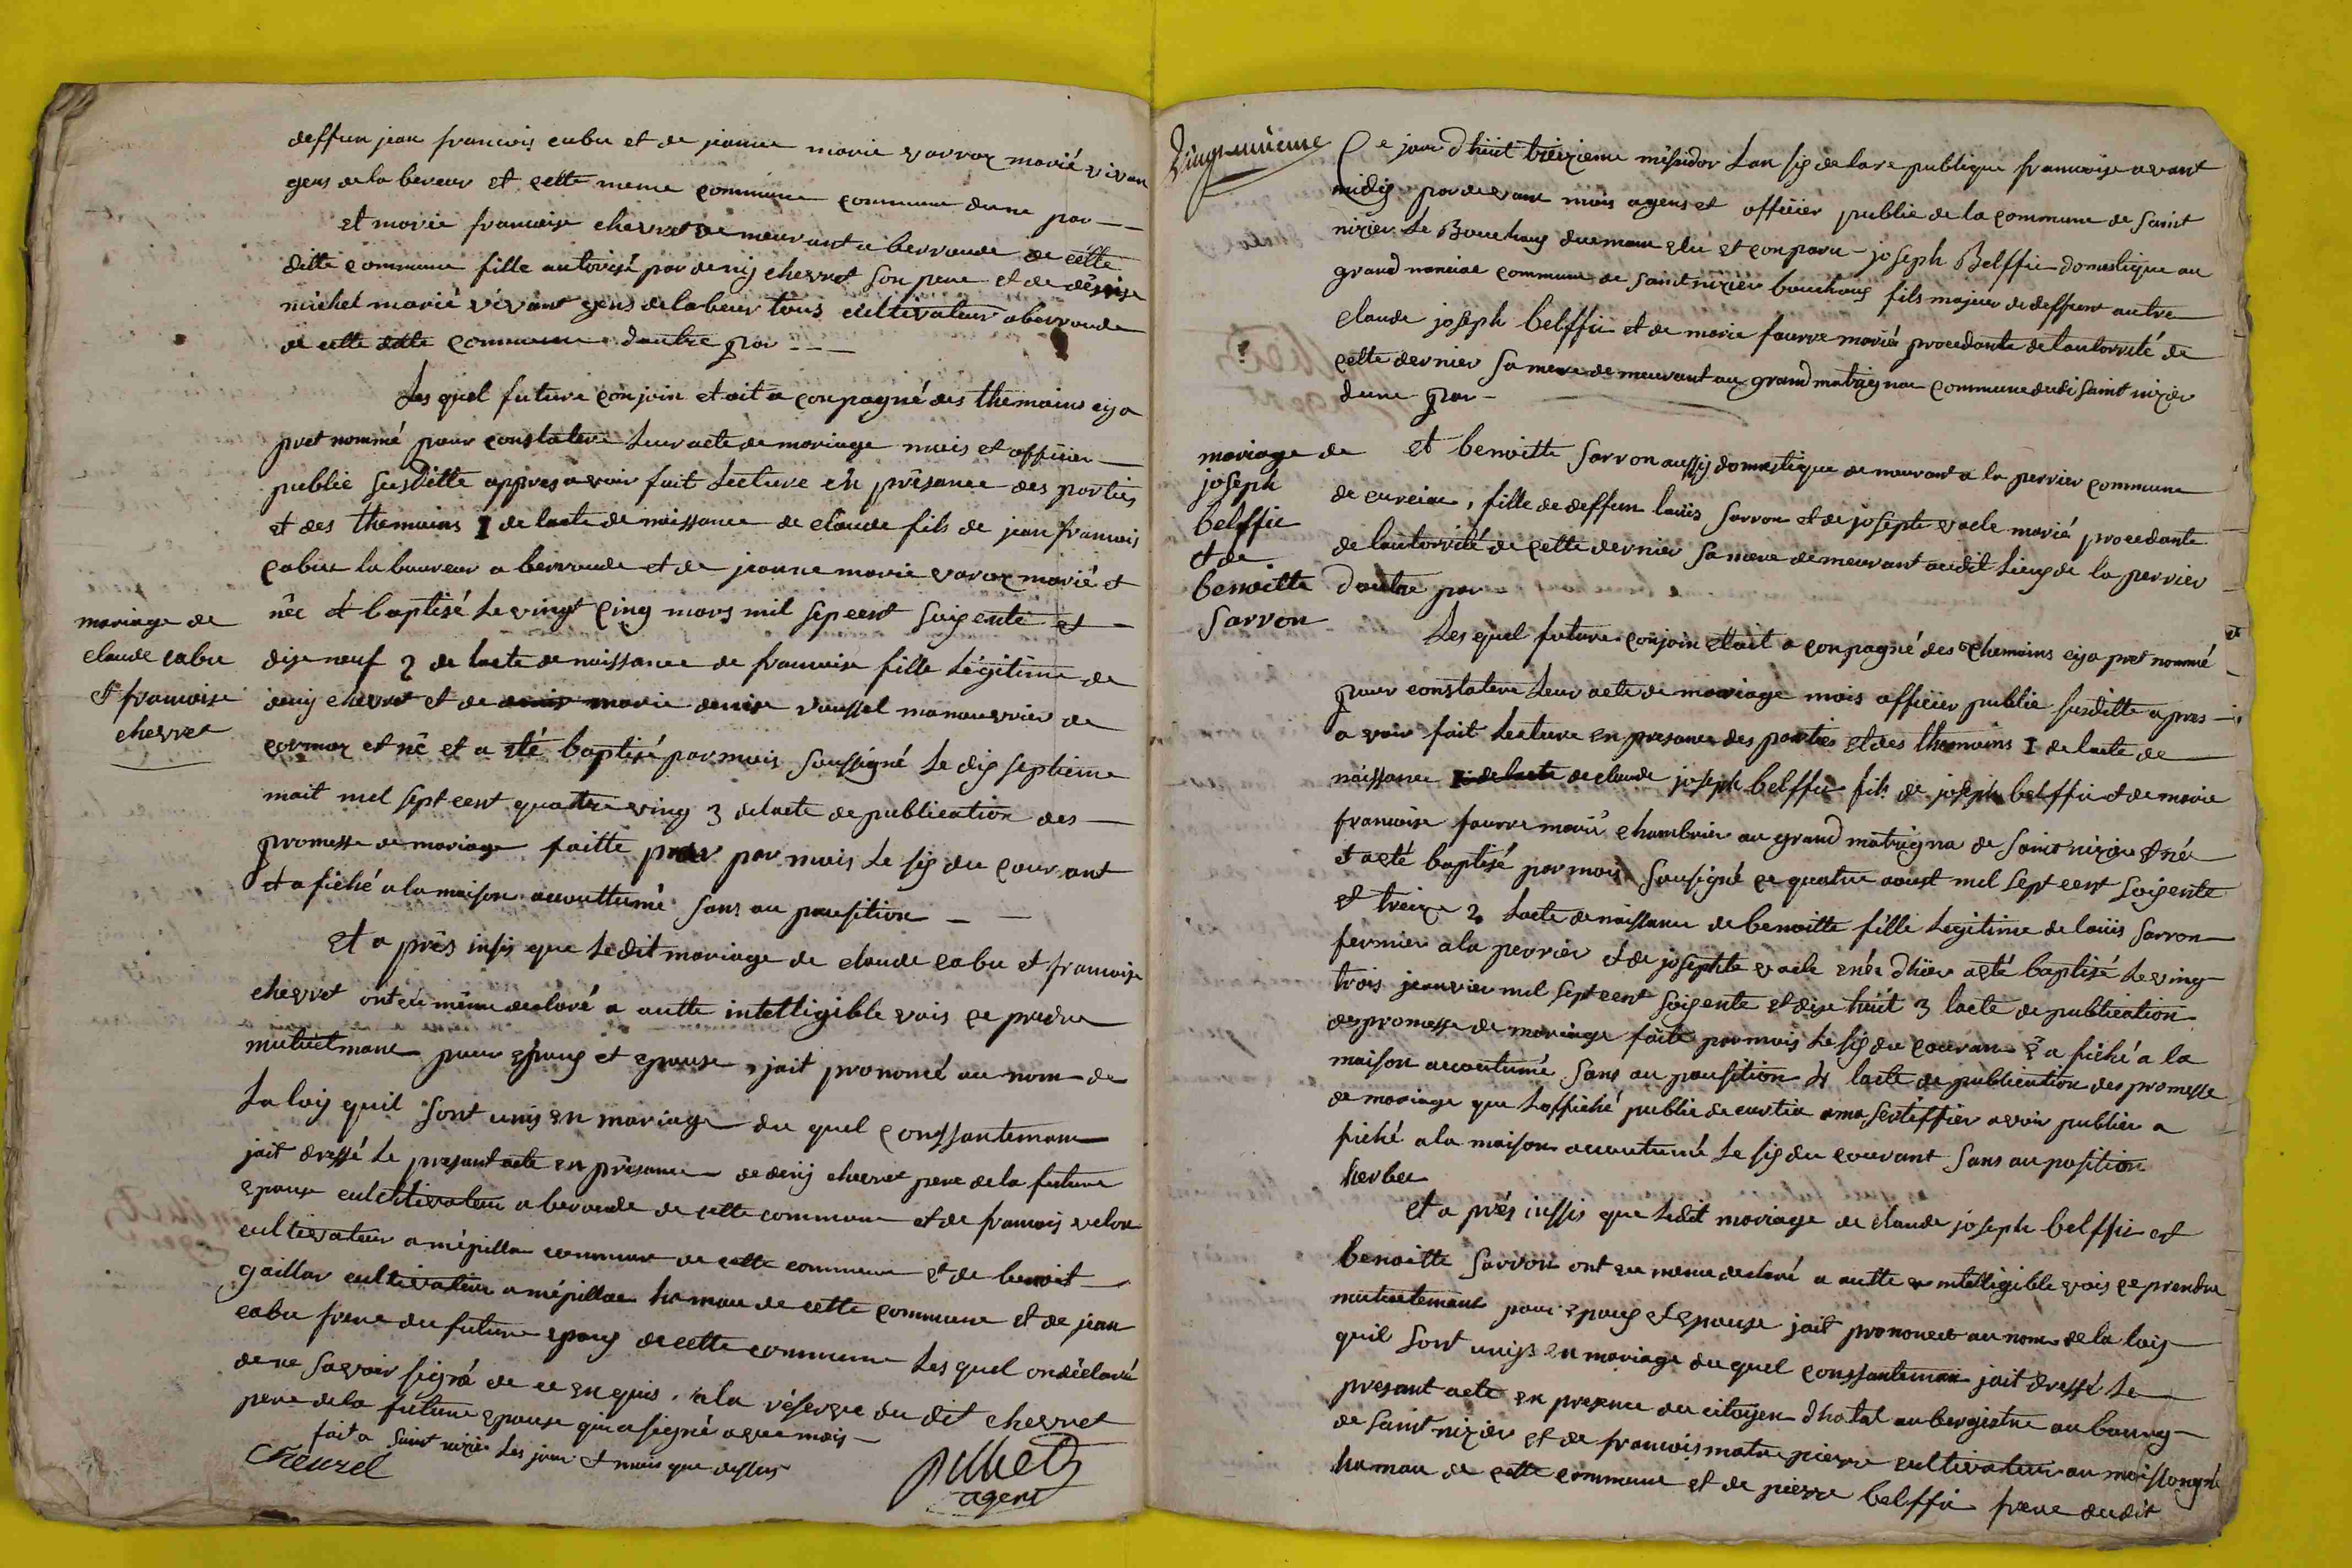 deffun jean francois cabu et de jeanne marie varrax marié vivan
gens de la beveur et cette meme commune commune dune par
et marie francoise chevret demeurant a berroude de cétte
ditte commune fille autorisé par denij chevret son pere et de dénise
michel marié vivant gens de labeur tous cultivateur a berroude
de cette ditte commune dautre par
Les quel future conjoin etait a conpagné des themoins cy a
pret nommé pour constatere leur acte de mariage mois et officier
publie susditte appres avoir fait Lecture én présance des parties
et des themoins 1 de lacte de naissance de claude fils de jean francois
cabu labuureur a berroude et de jeanne marie varax marié et
mariage de
claude cabu
et francoise
chevret
née et baptisé Le vingt cinq mars mil sepcent soigente et
dise neuf 2 de lacte de naissance de francoise fille Légitime de
denij chevret et de denis marie denise roussel manouvrier de
cormox et né et a été baptisé par mois soussigné Le dix septieme
mait mil sept cent quattre ving 3 de lacte de publication des
promesse de mariage faitte par par mois Le sis du courant
et a fiché a la maison accouttumé sans au pausition
Et a près insis que Ledit mariage de claude cabu et francoise
chevret ont eu méme declaré a autte intelligible vois ce predre
mutuelmant pour epoux et epouse jait prononcé au nom de
La loij quil sont unis en mariage du quel conssantemant
jait dressé Le présant acte en présance de denij chevret pere de la future
epouse cultitivateur a beroude de cette commune et de francois velon
cultivateur a mépillat commune de cette commune et de benoit
gaillar cultivateur a mépillat hamau de cette commune et de jean
cabu frere du future epoux de cette commune Les quel on déclaré
de ne savoir signé de ce en quis a la réserve du dit chevret
pere de la future epouse qui a signé avec mois
fait a saint nizier Les jour et mois que dessus
Chevret
agent
Vingt-unieme
Ce jour dhuit treizieme mésidor Lan sis de la re publique francoise avant
midij par devant mois agens et officier publie de la commune de saint
nizier Le Bouchoux dumant elu et conparu joseph Belffie domestique au
grand nonciat commune de saint nizier bouchoux fils majeur de deffunt autre
claude joseph belffie et de marie faurre marié procedante de lautorrité de
cette dernier sa mere demeurant au grand matrignat commune dudi saint nizier
dune par
mariage de
joseph
belffie
et de
benoitte
Sarron
et benoitte sarron aussij domestique demeurant a la perrier commune
de curciat, fille de deffun Louis sarron et de josephte vaele marié procedante
de lautorrité de cette dernier sa mere demeurant audit Lieux de la perrier
dautre par
Les quel future conjoin etait a conpagné des themoins cij a pret nommé
pour constatere Leur acte de mariage mois officier publie susditte apres
a voir fait Lecture en presance des parties et des themoins 1 de lacte de
naissance 1 de lacte de claude joseph belffie fils de joseph belffie et de marie
francoise faurre marié chambrier au grand matrigna de saint nizier et né
et a eté baptisé par mois sousigné ce quatre aoust mil sept cent soigente
et treize 2 Lacte de naissance de benoitte fille Legitime de louis sarron
fermier a la perrier et de josephte vaele née dhier a eté baptisé Le ving
trois jeanvier mil sept cent soigente et dise huit 3 lacte de publication
des promesse de mariage faite par mois Le sis du couran et a fiché a la
maison accoutumé sans au pausition 4 lacte de publication des promesse
de mariage que Loffiché publie de curtia a ma sertiffier avoir publier a
fiché a la maison accoutumé Le sis du courant sans au position
herbet
et a prés inssis que Ledit mariage de claude joseph belffie et
benoitte sarron ont eu meme declaré a autte et intelligible vois ce prendre
mutuelemant pour epoux et Epouse jait prononcet au nom de la loij
quil sont unijs en mariage du quel conssanteman jait dressé Le
presant acte en presance du citoijen dhotal aubergistre au bourg
de saint nizier et de francois matre pierre cultivateur au moissongné
hamau de cette commune et de pierre belffie frere dudit